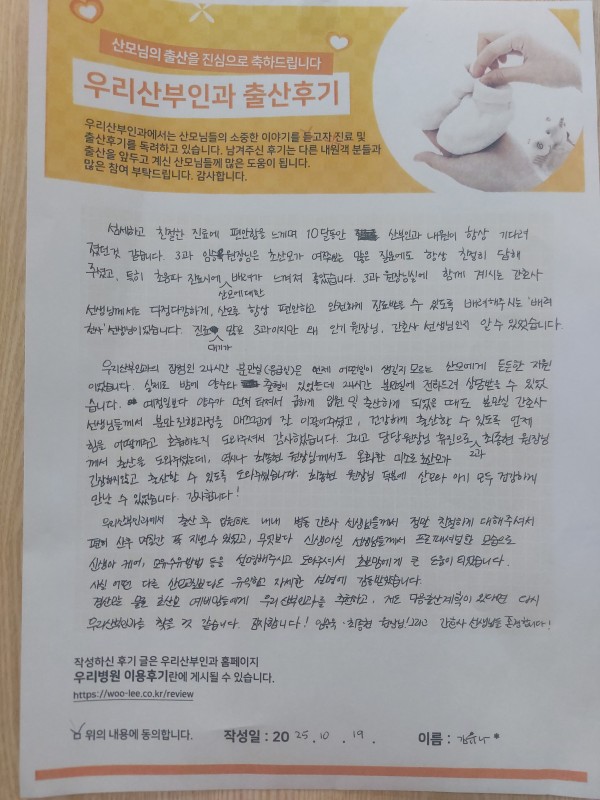 산모님의 출산을 진심으로 축하드립니다
우리산부인과 출산후기
우리산부인과에서는 산모님들의 소중한 이야기를 듣고자 진료 및
출산후기를 독려하고 있습니다. 남겨주신 후기는 다른 내원객 분들과
출산을 앞두고 계신 산모님들께 많은 도움이 됩니다.
많은 참여 부탁드립니다. 감사합니다.
섬세하고 친절한 진료에 편안함을 느끼며 10달동안 산부인과 내원이 항상 기다려
졌던것 같습니다. 3과 원장님은 초산모가 여쭤보는 많은 질문에도 항상 친절히 답해
주셨고, 특히 초음파 진료시에 산모에 대한 배려가 느껴져 좋았습니다. 3과 원장님실에 함께 계시는 간호사
선생님께서는 다정다감하게, 산모로 항상 편안하고 안전하게 진료받을 수 있도록 배려해주시는 '배려
천사' 선생님이셨습니다. 진료 대기가 많은 3과이지만 왜 인기 원장님, 간호사 선생님인지 알 수 있었습니다.
우리산부인과의 장점인 24시간 분만실(응급실)은 언제 어떤일이 생길지 모르는 산모에게 든든한 지원
이었습니다. 실제로 밤에 양수와 출혈이 있었는데 24시간 분만실에 전화드려 상담받을 수 있었
습니다. 예정일보다 양수가 먼저 터져서 급하게 입원 및 출산하게 되었을 때도 분만실 간호사
선생님들께서 분만진행과정을 매끄럽게 잘 이끌어주셨고, 건강하게 출산할 수 있도록 언제
힘을 어떻게주고 호흡하는지 도와주셔서 감사했습니다. 그리고 담당 원장님 휴진으로 2과 최종현 원장님
께서 출산을 도와주셨는데, 역시나 최종현 원장님께서도 온화한 미소로 초산모가
긴장하지않고 출산할 수 있도록 도와주셨습니다. 최종현 원장님 덕분에 산모와 아기 모두 건강하게
만날 수 있었습니다. 감사합니다!
우리산부인과에서 출산 후 입원하는 내내 병동 간호사 선생님들께서 정말 친절하게 대해주셔서
편히 산후 며칠간 푹 지낼 수 있었고, 무엇보다 신생아실 선생님들께서 프로페셔널한 모습으로
신생아 케어, 모유수유방법 등을 설명해주시고 도와주셔서 초보맘에게 큰 도움이 되었습니다.
사실 어떤 다른 산모교실보다도 유익하고 자세한 설명에 감동받았습니다.
경산모는 물론 초산모 예비맘들에게 우리산부인과를 추천하고, 저도 다음출산계획이 있다면 다시
우리산부인과를 찾을 것 같습니다. 감사합니다! 최종현 원장님! 그리고 간호사 선생님들
작성하신 후기 글은 우리산부인과 홈페이지
우리병원 이용후기란에 게시될 수 있습니다.
https://woo-lee.co.kr/review
위의 내용에 동의합니다. 작성일 : 20 25. 10 . 19 . 이름 : 김유나*